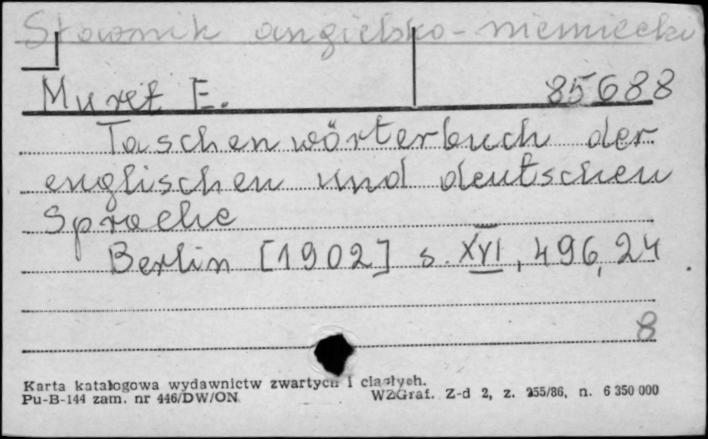 Słownik angielsko-niemiecki
Muret E. 85688
Taschenwörterbuch der
englischen und deutschen
Sprache
Berlin [1902] s. XVI, 496, 24.
8
Karta katalogowa wydawnictw zwartych i ciągłych.
Pu-B-144 zam. nr 446/DW/ON WZGraf. Z-d 2, z. 255/86, n. 6 350 000